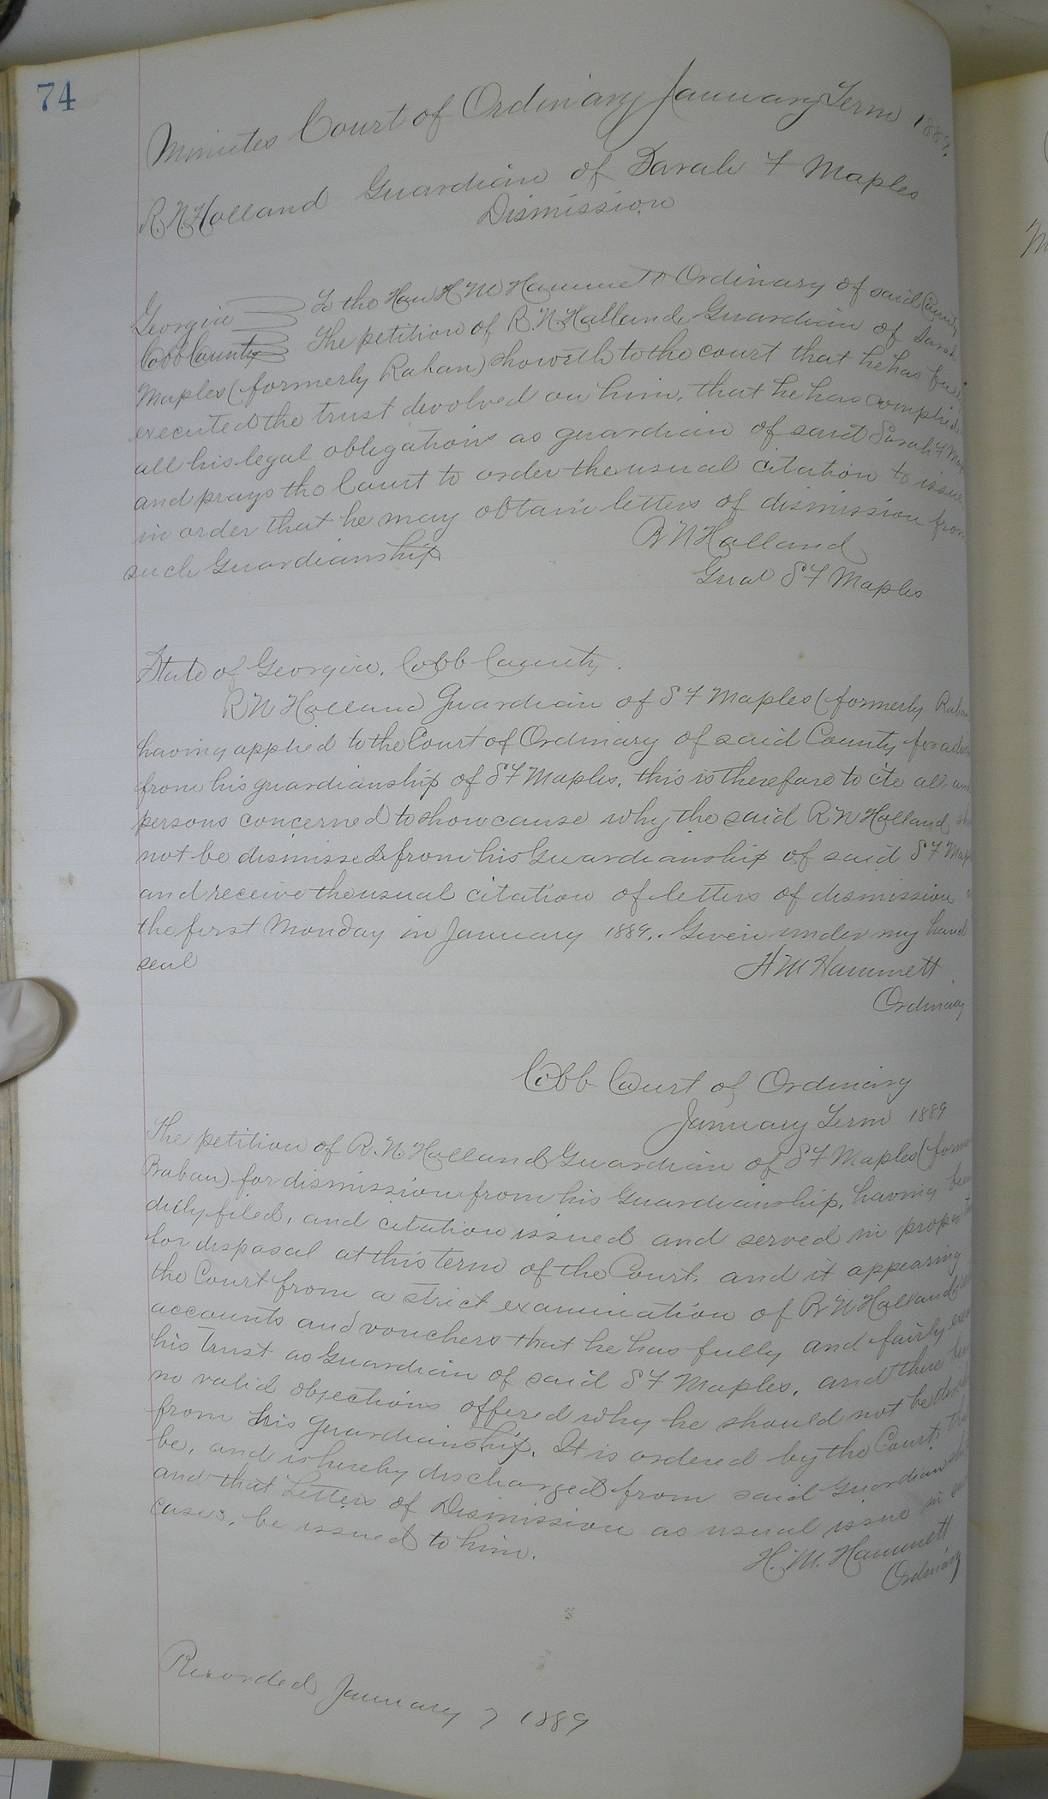 74
Minutes Court of Ordinary January Term 1889.
R. N. Holland Guardian of Sarah F Maples
Dismission
Georgia To the Hon H M Hammett Ordinary of said County
Cobb County The petition of R. N. Holland Guardian of Sarah
Maples (formerly Raban) showeth to the court that he has
executed the trust devolved on him, that he has complied
all his legal obligations as guardian of said Sarah F
and prays the Court to order the usual citation to issue
in order that he may obtain letters of dismission from
such Guardianship
R N Holland
Guar S F Maples
State of Georgia, Cobb County.
R N Holland Guardian of S F Maples (formerly
having applied to the Court of Ordinary of said County for a
from his guardianship of S F Maples, this is therefore to cite all
persons concerned to show cause why the said R N Holland
not be dismissed from his Guardianship of said S F
and receive the usual citation of letters of dismission
the first Monday in January 1889. Given under my hand
seal
H M Hammett
Ordinary
Cobb Court of Ordinary
January Term 1889
The petition of R. N. Holland Guardian of S F Maples
Raban) for dismission from his Guardianship, having been
duly filed, and citation issued and served in proper
for disposal at this term of the Court, and it appearing
the Court from a strict examination of R N Holland
accounts and vouchers that he has fully and fairly
his trust as Guardian of said S F Maples, and there
no valid objections offered why he should not be
from his guardianship. It is ordered by the Court
be, and is hereby discharged from said
and that Letters of Dismission as usual issue in
cases, be issued to him.
H. M. Hammett
Ordinary
Recorded January 7 1889